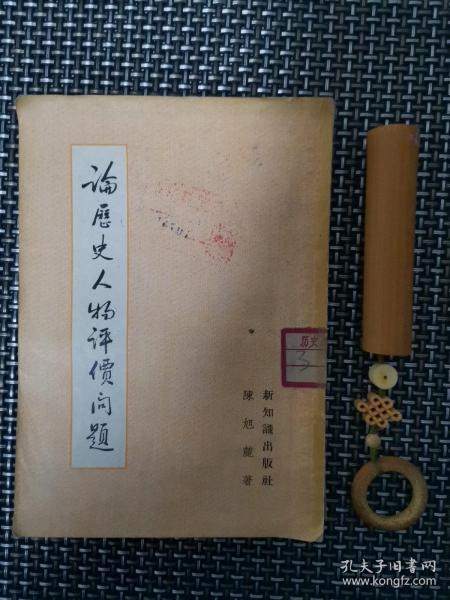 論歷史人物評價問題
历史
3
新知識出版社
陳旭麓著
孔夫子旧书网
www.kongfz.com